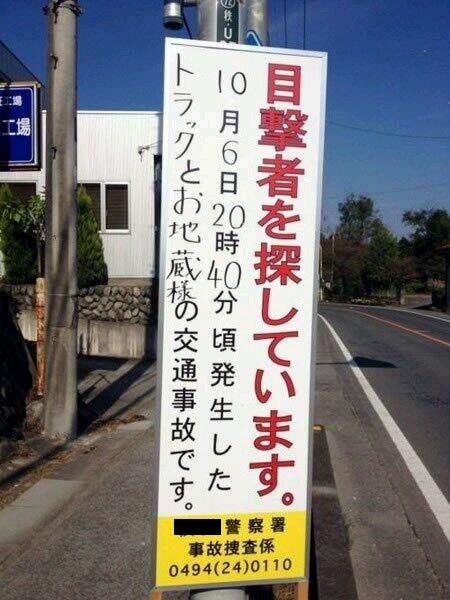 目撃者を探しています。
10月6日20時40分頃発生した
トラックとお地蔵様の交通事故です。
警察署
事故捜査係
0494(24)0110
工場